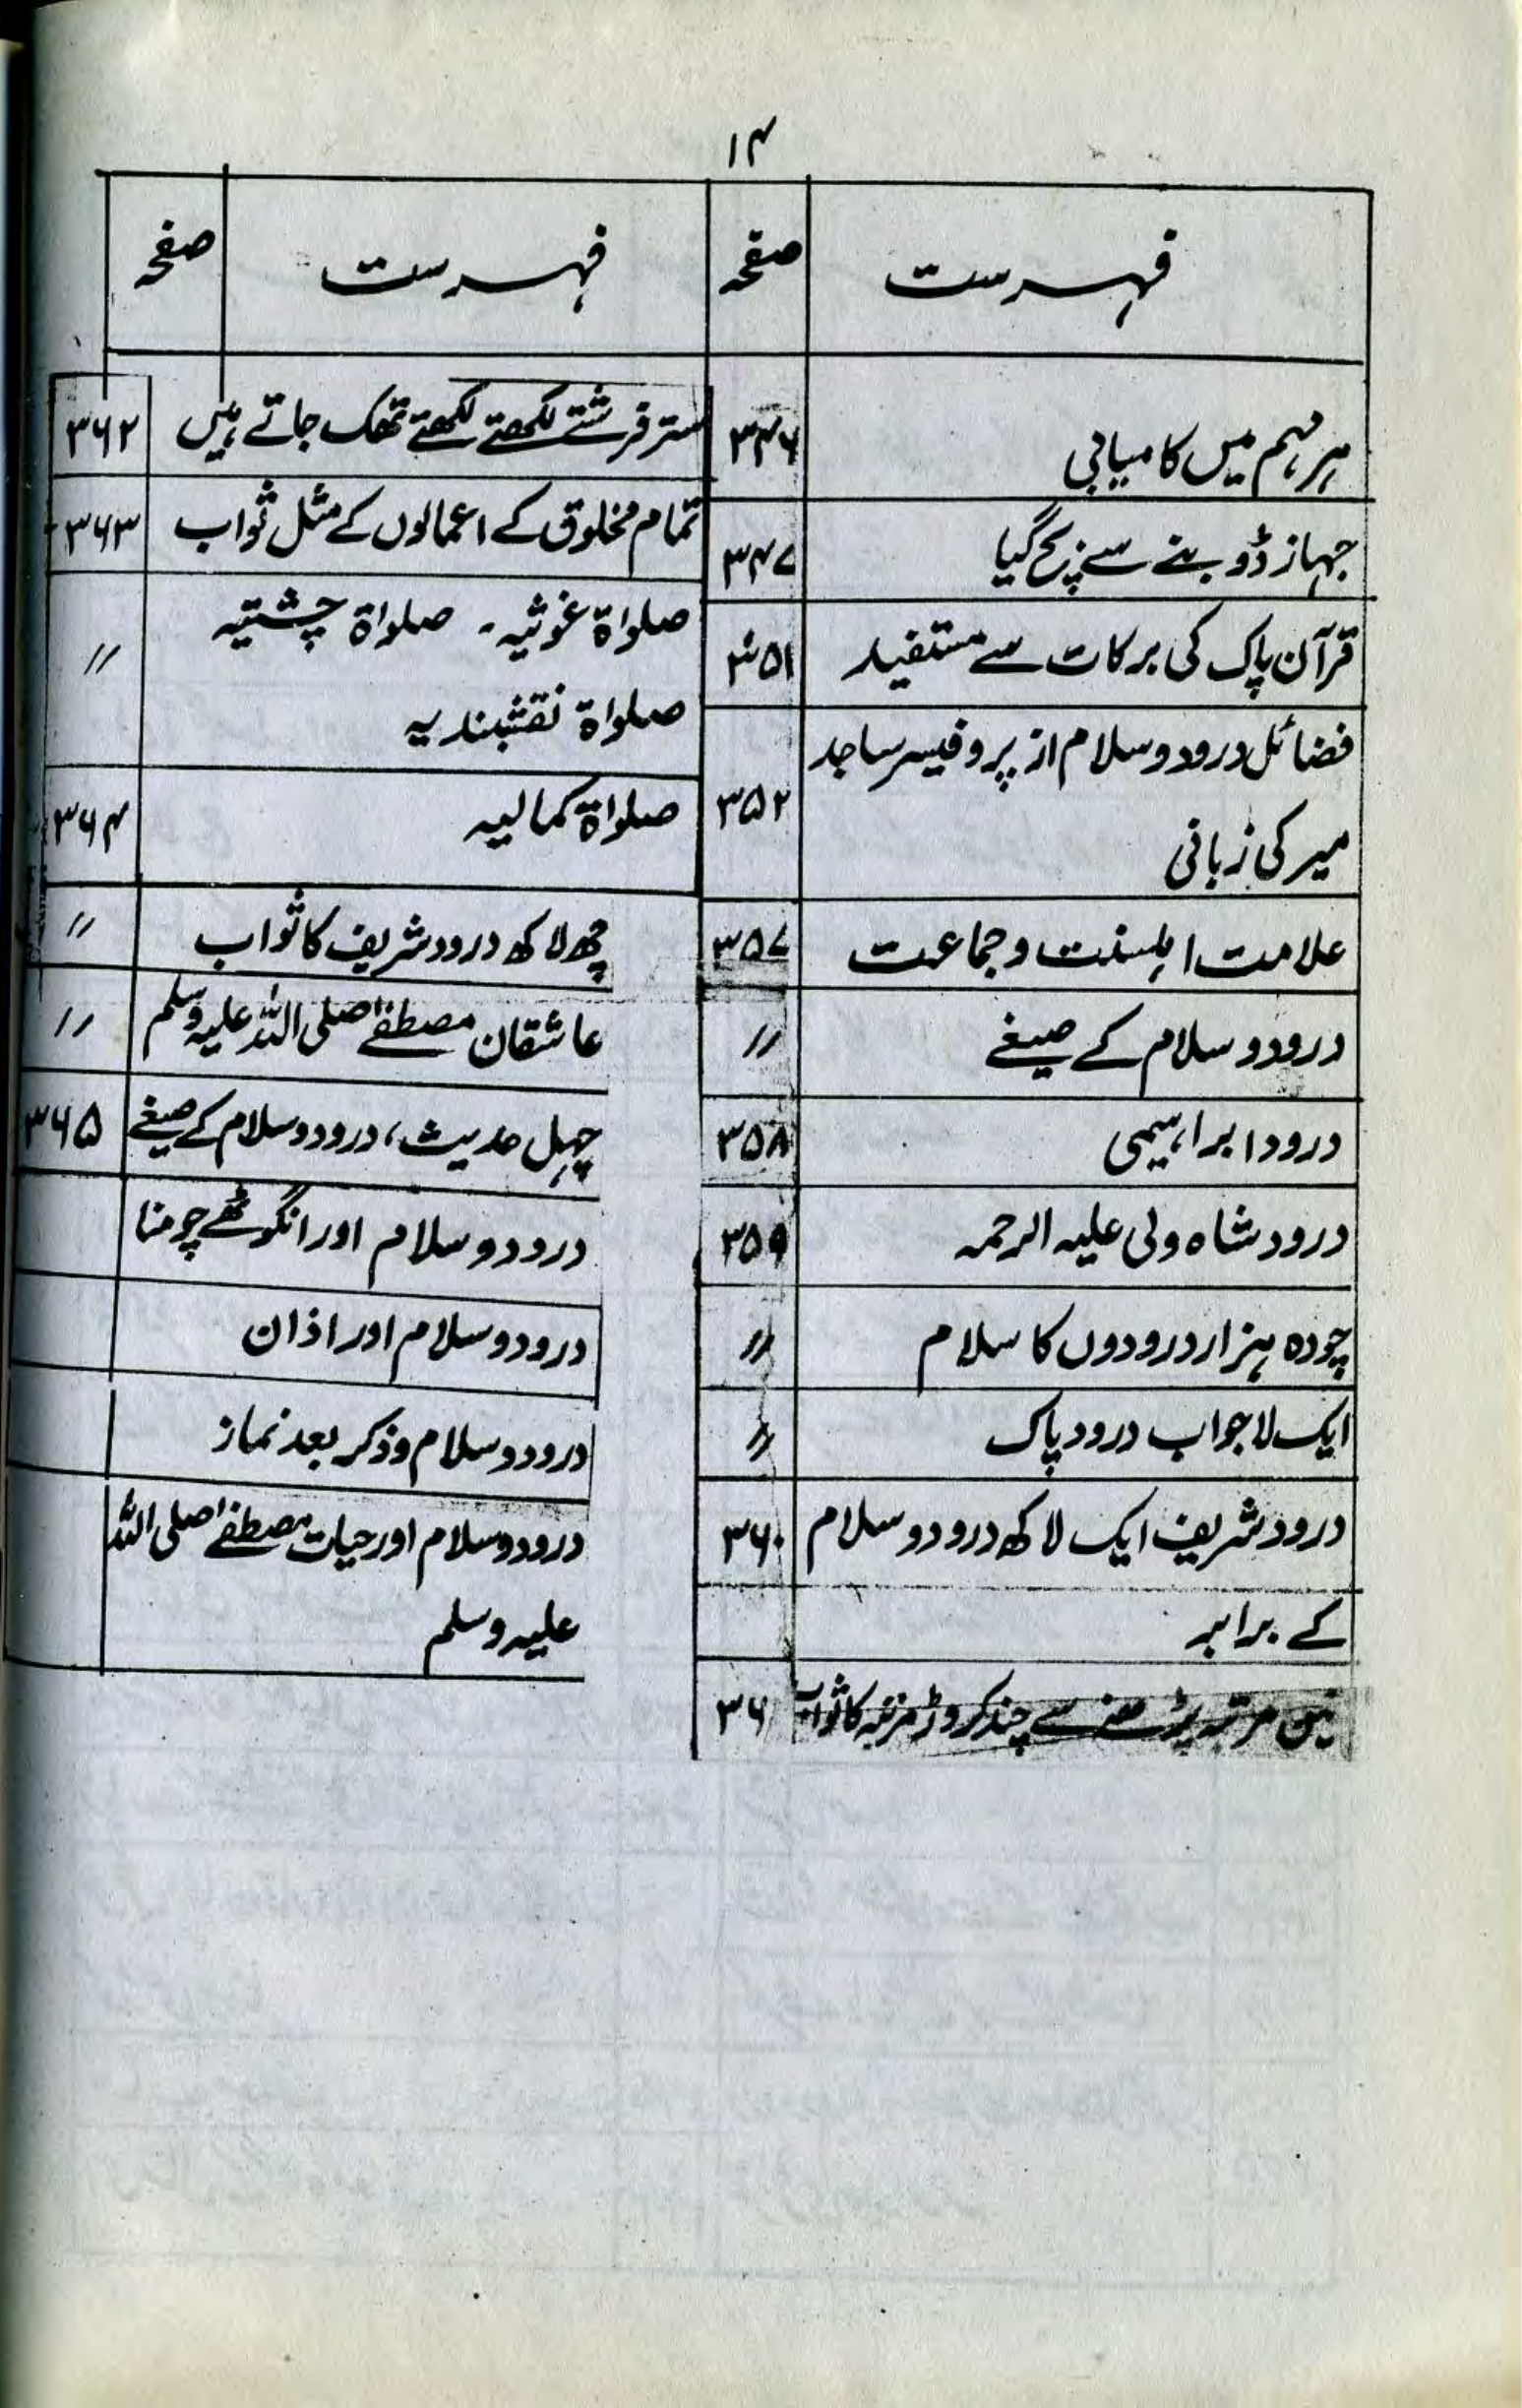 ۱۴
فہرست صفحہ
ہر مہم میں کامیابی ۳۴۶
جہاز ڈوبنے سے بچ گیا ۳۴۷
قرآن پاک کی برکات سے مستفید ۳۵۱
فضائل درود و سلام از پروفیسر ساجد
میر کی زبانی ۳۵۲
علامت اہلسنت و جماعت ۳۵۷
درود و سلام کے صیغے 〃
درود ابراہیمی ۳۵۸
درود شاہ ولی علیہ الرحمہ ۳۵۹
چودہ ہزار درودوں کا سلام 〃
ایک لاجواب درود پاک 〃
درود شریف ایک لاکھ درود و سلام ۳۶۰
کے برابر
تین مرتبہ پڑھنے سے چند کروڑ مرتبہ کا ثواب ۳۶۱
فہرست صفحہ
ستر فرشتے لکھتے لکھتے تھک جاتے ہیں ۳۶۲
تمام مخلوق کے اعمالوں کے مثل ثواب ۳۶۳
صلواۃ غوثیہ۔ صلواۃ چشتیہ 〃
صلواۃ نقشبندیہ
صلواۃ کمالیہ ۳۶۴
چھ لاکھ درود شریف کا ثواب 〃
عاشقان مصطفےٰ صلی اللہ علیہ وسلم 〃
چہل حدیث، درود و سلام کے صیغے ۳۶۵
درود و سلام اور انگوٹھے چومنا
درود و سلام اور اذان
درود و سلام و ذکر بعد نماز
درود و سلام اور حیات مصطفےٰ صلی اللہ
علیہ وسلم